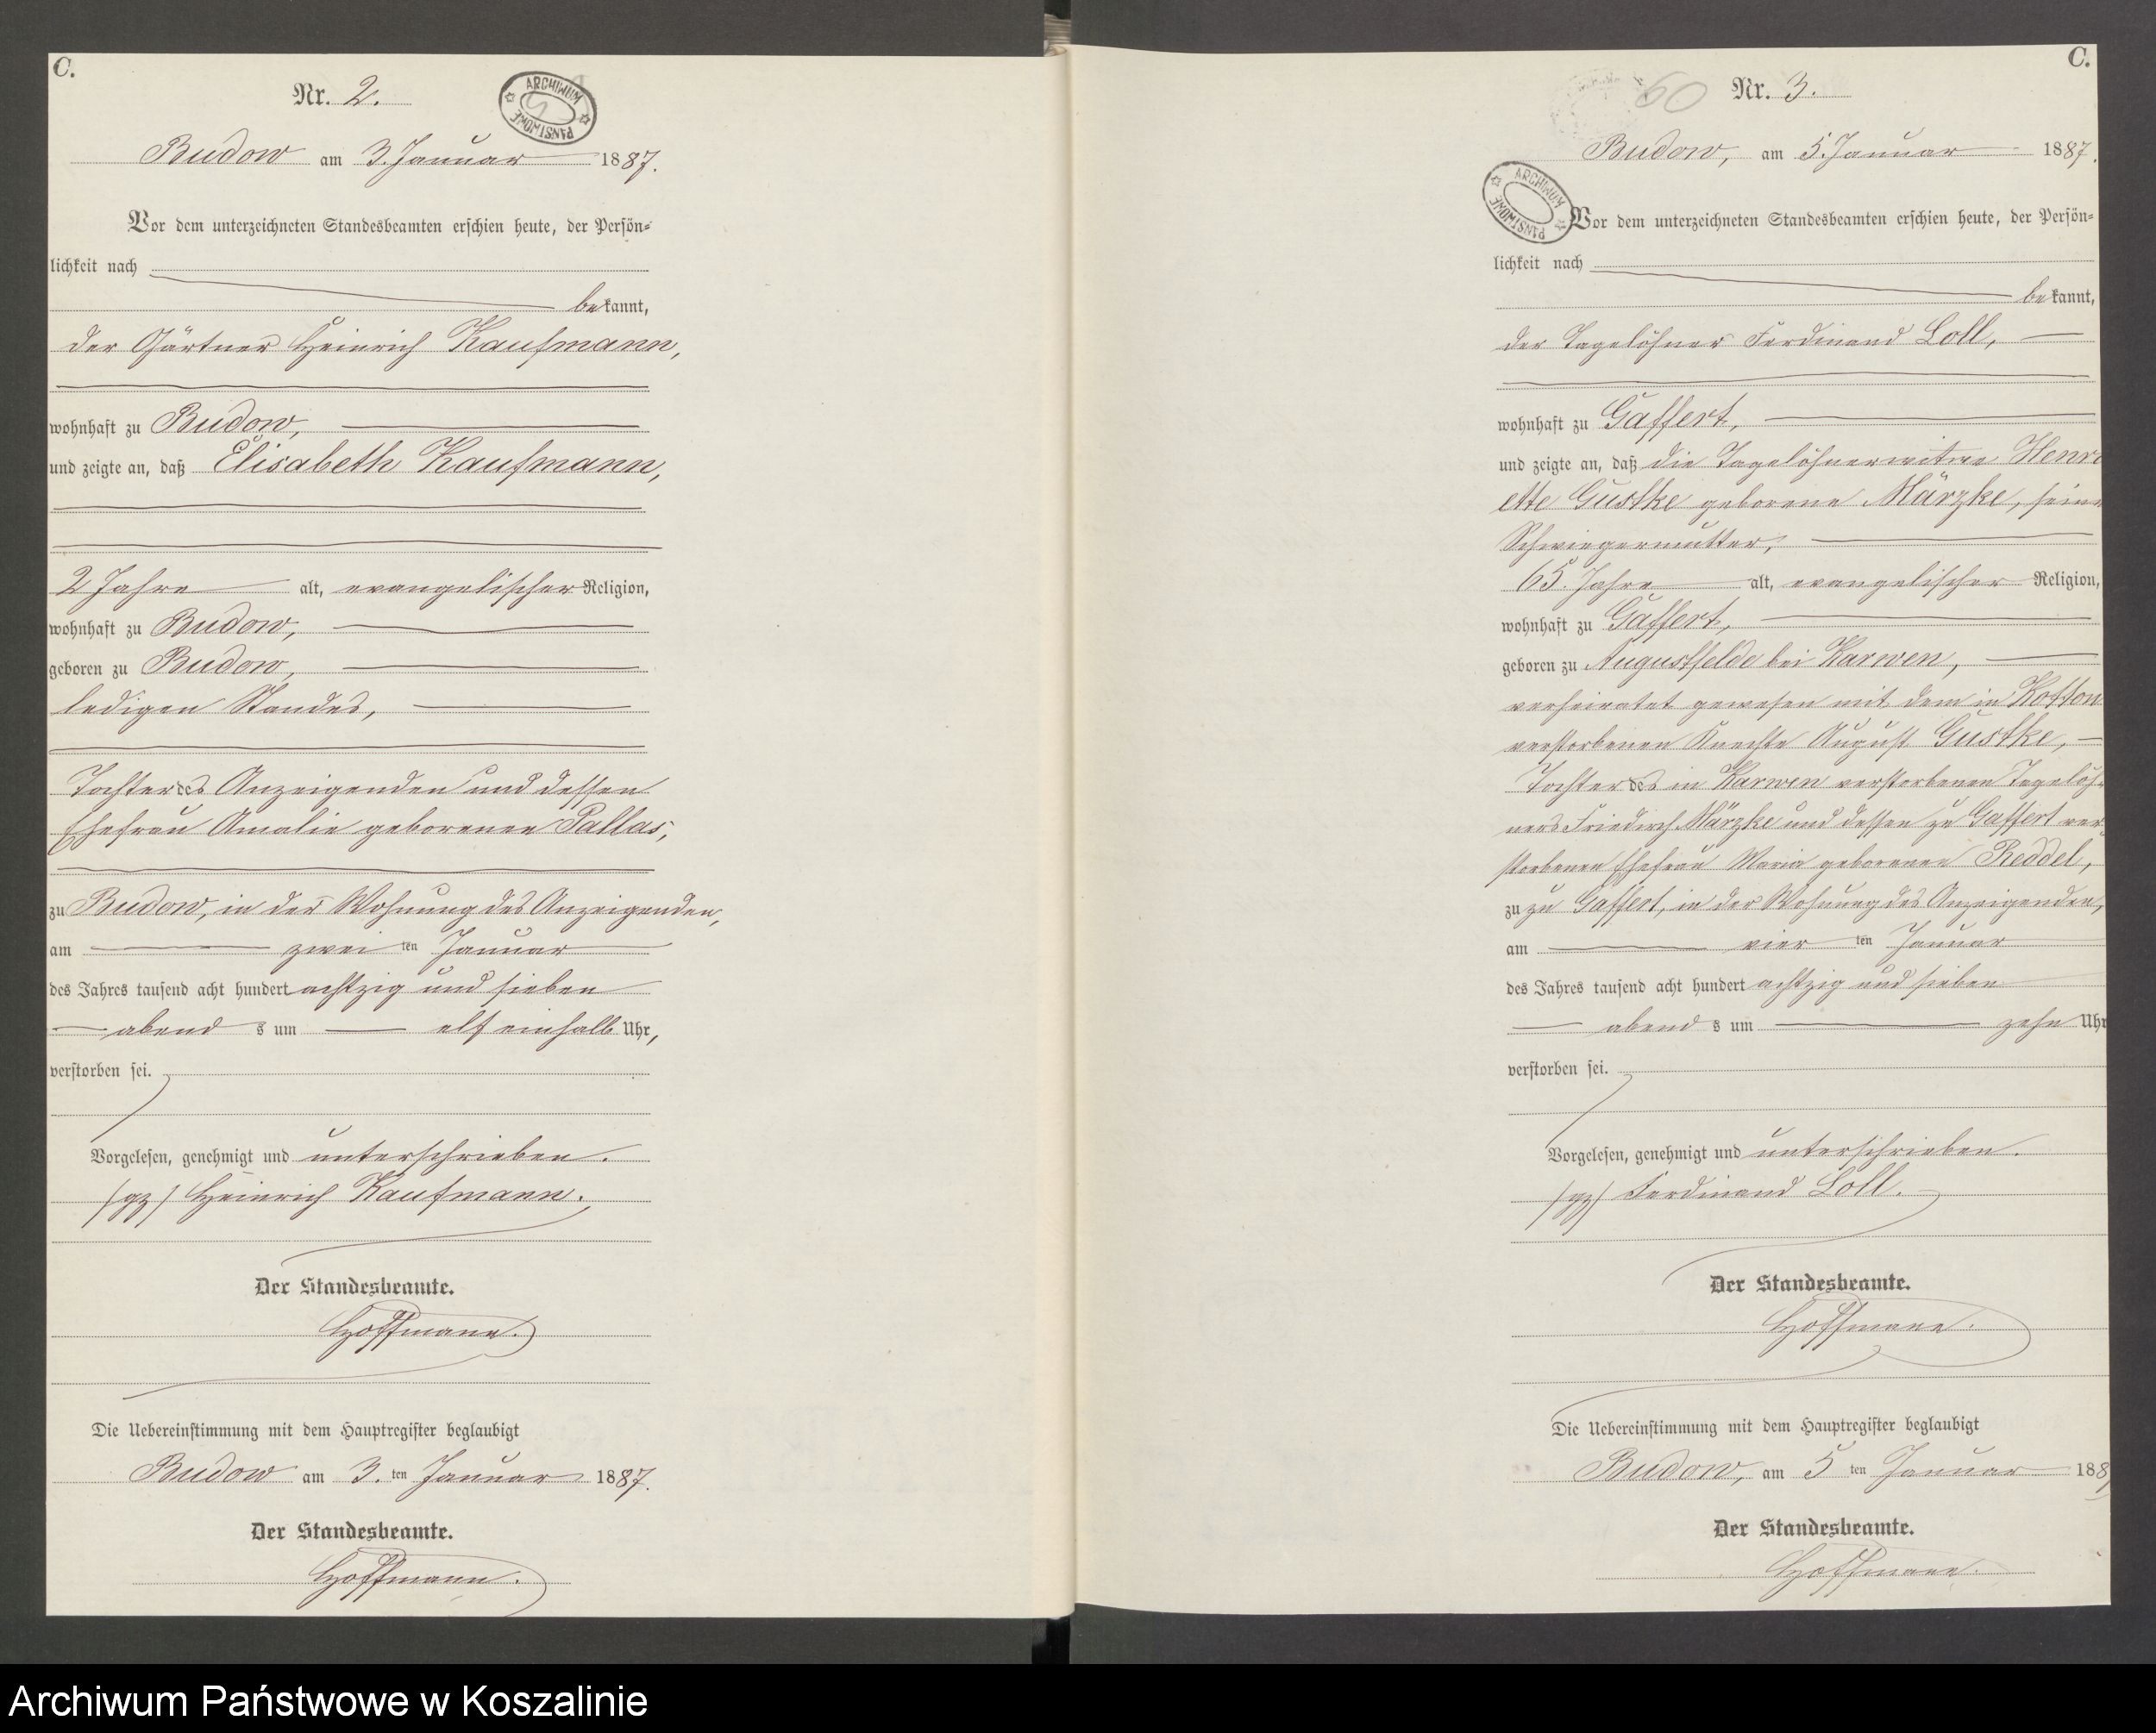 C.
Nr. 2.
ARCHIWUM PAŃSTWOWE
Budow am 3. Januar 1887.
Vor dem unterzeichneten Standesbeamten erschien heute, der Persön-
lichkeit nach
bekannt,
der Gärtner Heinrich Kaufmann,
wohnhaft zu Budow,
und zeigte an, daß Elisabeth Kaufmann,
2 Jahre alt, evangelischer Religion,
wohnhaft zu Budow,
geboren zu Budow,
ledigen Standes,
Tochter des Anzeigenden und dessen
Ehefrau Amalie geborenen Pallas,
zu Budow, in der Wohnung des Anzeigenden,
am zweiten Januar
des Jahres tausend acht hundert achtzig und sieben
abends um elf einhalb Uhr,
verstorben sei.
Vorgelesen, genehmigt und unterschrieben.
/gz/ Heinrich Kaufmann.
Der Standesbeamte.
Hoffmann.
Die Uebereinstimmung mit dem Hauptregister beglaubigt
Budow am 3.ten Januar 1887.
Der Standesbeamte.
Hoffmann.
C.
60
Nr. 3.
Budow, am 5. Januar 1887.
ARCHIWUM PAŃSTWOWE
Vor dem unterzeichneten Standesbeamten erschien heute, der Persön-
lichkeit nach
bekannt,
der Tagelöhner Ferdinand Loll,
wohnhaft zu Gaffert,
und zeigte an, daß die Tagelöhnerwitwe Henri
ette Gustke geborene Märzke, seine
Schwiegermutter,
65. Jahre alt, evangelischer Religion,
wohnhaft zu Gaffert,
geboren zu Augustfelde bei Karwen,
verheiratet gewesen mit dem in
verstorbenen Knechte August Gustke,
Tochter des in Karwen verstorbenen Tagelöh-
ners Friedrich Märzke und dessen zu Gaffert ver-
storbenen Ehefrau Maria geborenen Reddel,
zu zu Gaffert, in der Wohnung des Anzeigenden,
am vierten Januar
des Jahres tausend acht hundert achtzig und sieben
abends um zehn Uhr
verstorben sei.
Vorgelesen, genehmigt und unterschrieben.
/gz/ Ferdinand Loll.
Der Standesbeamte.
Hoffmann.
Die Uebereinstimmung mit dem Hauptregister beglaubigt
Budow, am 5ten Januar 1887
Der Standesbeamte.
Hoffmann.
Archiwum Państwowe w Koszalinie